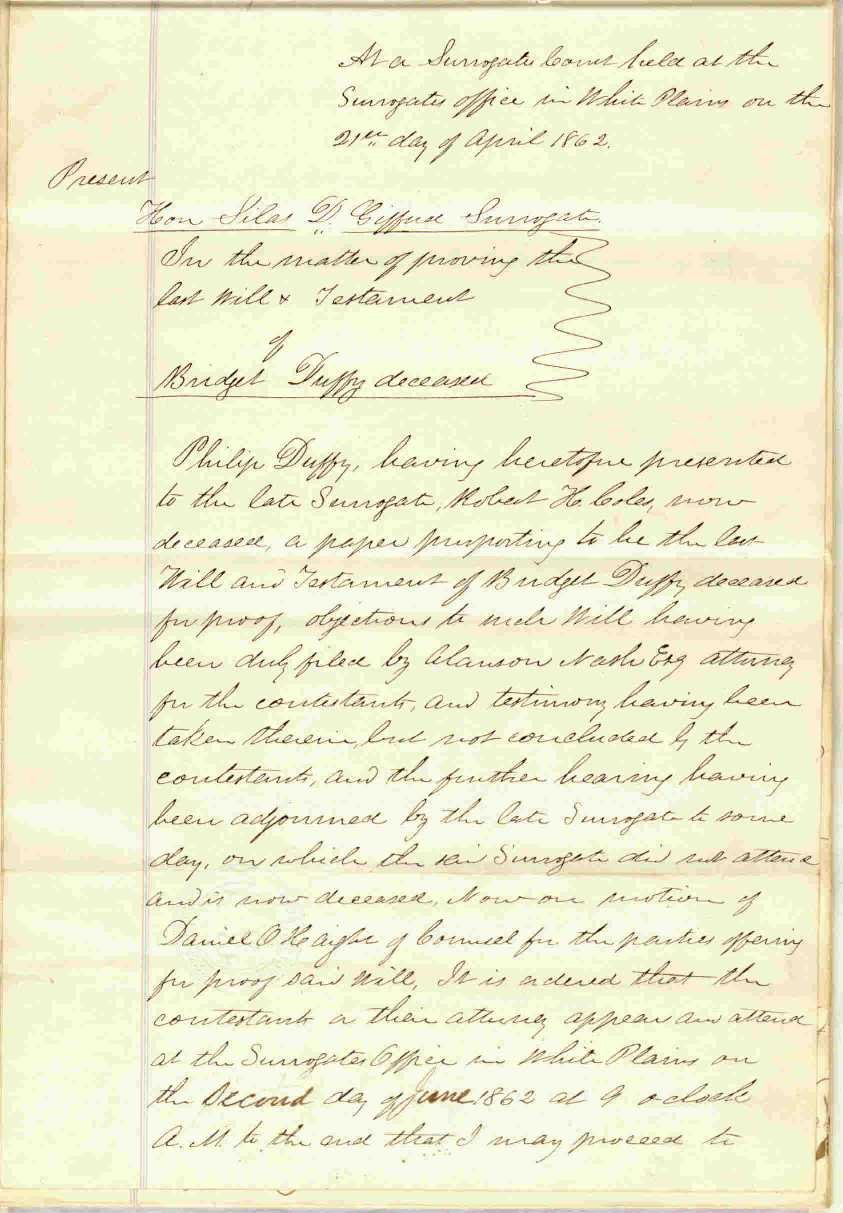 At a Surrogates Court held at the
Surrogates office in White Plains on the
21st day of April 1862.
Present
Hon Silas D. Gifford Surrogate.
In the matter of proving the
last Will & Testament
of
Bridget Duffy deceased
Philip Duffy, having heretofore presented
to the late Surrogate, Robert H. Coles, now
deceased, a paper purporting to be the last
Will and Testament of Bridget Duffy deceased
for proof, objections to such Will having
been duly filed by Alanson Nash Esq attorney
for the contestants, and testimony having been
taken therein, but not concluded by the
contestants, and the further hearing having
been adjourned by the late Surrogate to some
day, on which the said Surrogate did not attend
and is now deceased, Now on motion of
Daniel O Haight of Counsel for the parties offering
for proof said Will, It is ordered that the
contestants or their attorney appear and attend
at the Surrogates Office in White Plains on
the Second day of June 1862 at 9 oclock
A.M. to the end that I may proceed to